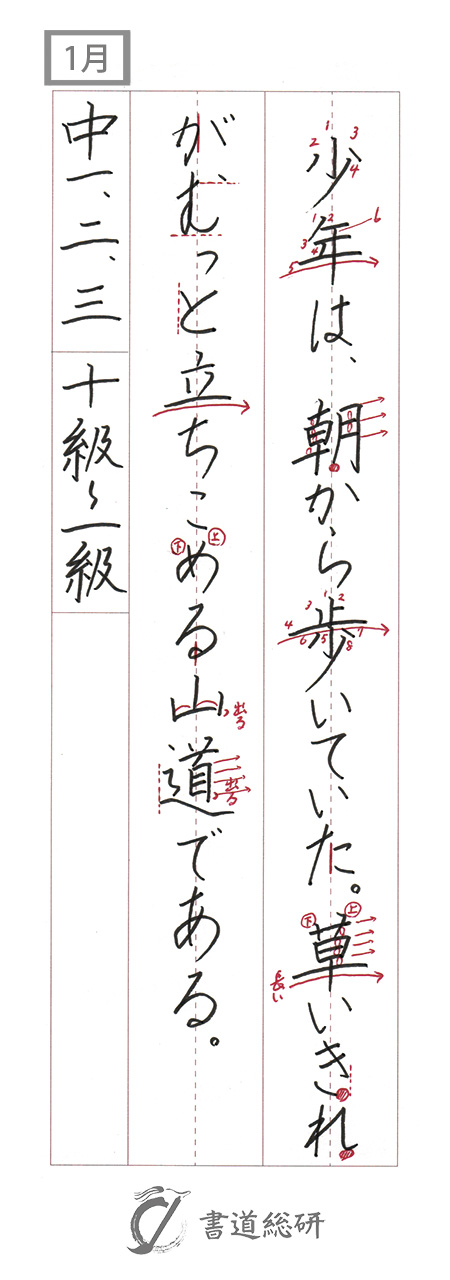 1月
少年は、朝から歩いていた。草いきれ
がむっと立ちこめる山道である。
中一、二、三
十級〜一級
1
2
3
4
1
2
3
4
5
6
1
2
3
4
5
6
7
8
下
上
長い
下
上
出る
出る
書道総研